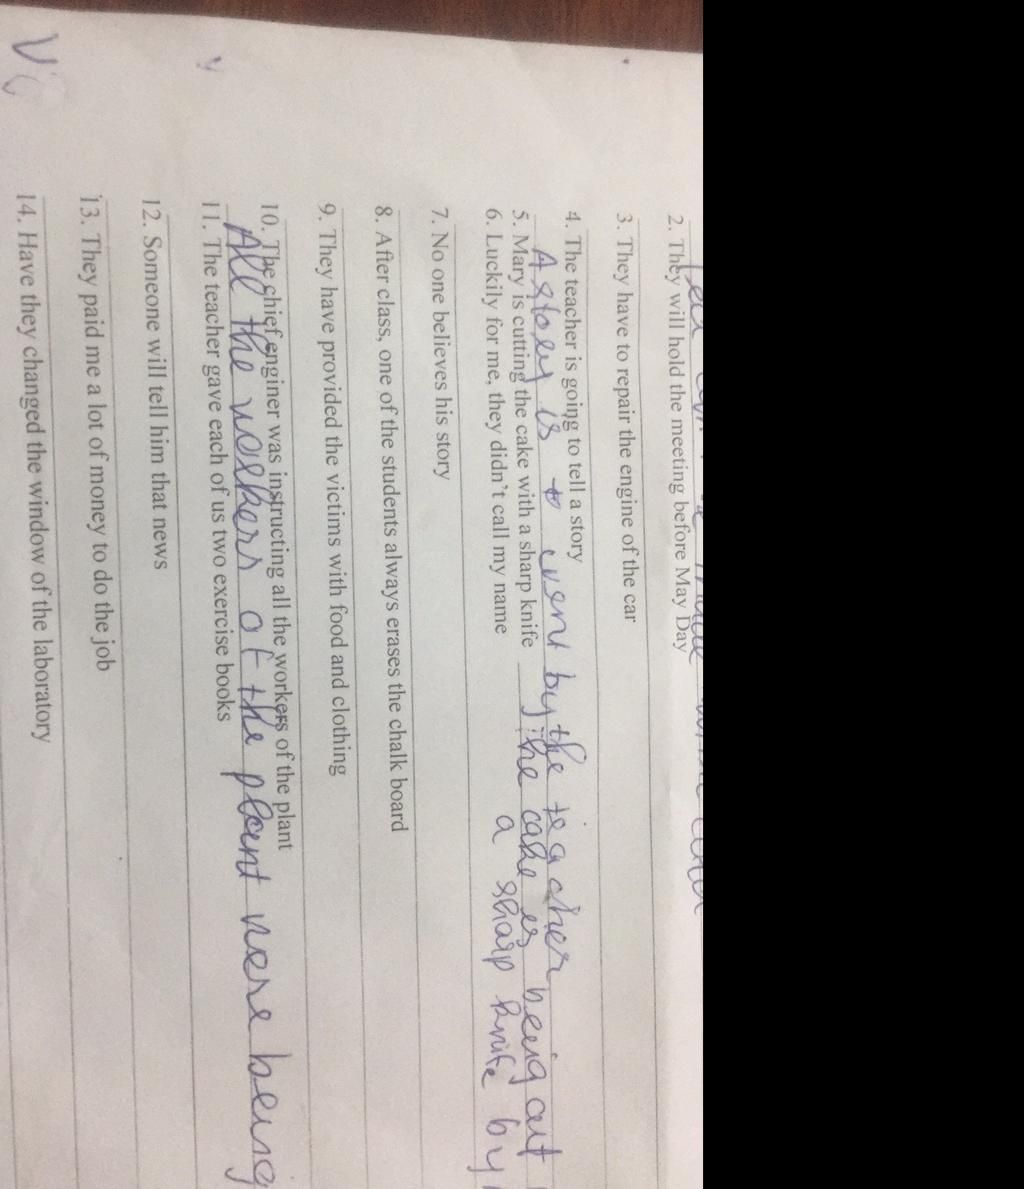 2. They will hold the meeting before May Day
3. They have to repair the engine of the car
4. The teacher is going to tell a story
A story is to went by the teacher
5. Mary is cutting the cake with a sharp knife The cake is being cut
6. Luckily for me, they didn't call my name a sharp knife by
7. No one believes his story
8. After class, one of the students always erases the chalk board
9. They have provided the victims with food and clothing
10. The chief enginer was instructing all the workers of the plant
All the workers of the plant were being
11. The teacher gave each of us two exercise books
12. Someone will tell him that news
13. They paid me a lot of money to do the job
14. Have they changed the window of the laboratory